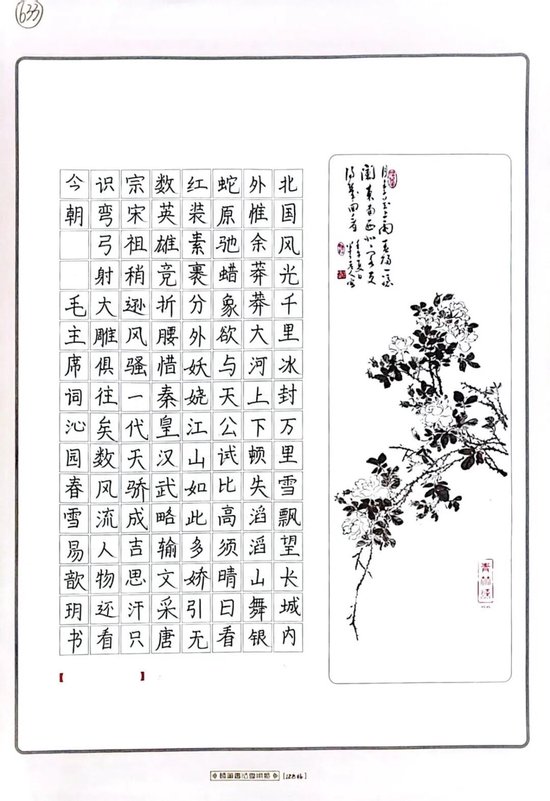 633
北国风光千里冰封万里雪飘望长城内
外惟余莽莽大河上下顿失滔滔山舞银
蛇原驰蜡象欲与天公试比高须晴日看
红装素裹分外妖娆江山如此多娇引无
数英雄竞折腰惜秦皇汉武略输文采唐
宗宋祖稍逊风骚一代天骄成吉思汗只
识弯弓射大雕俱往矣数风流人物还看
今朝 毛主席词沁园春雪易歆玥书